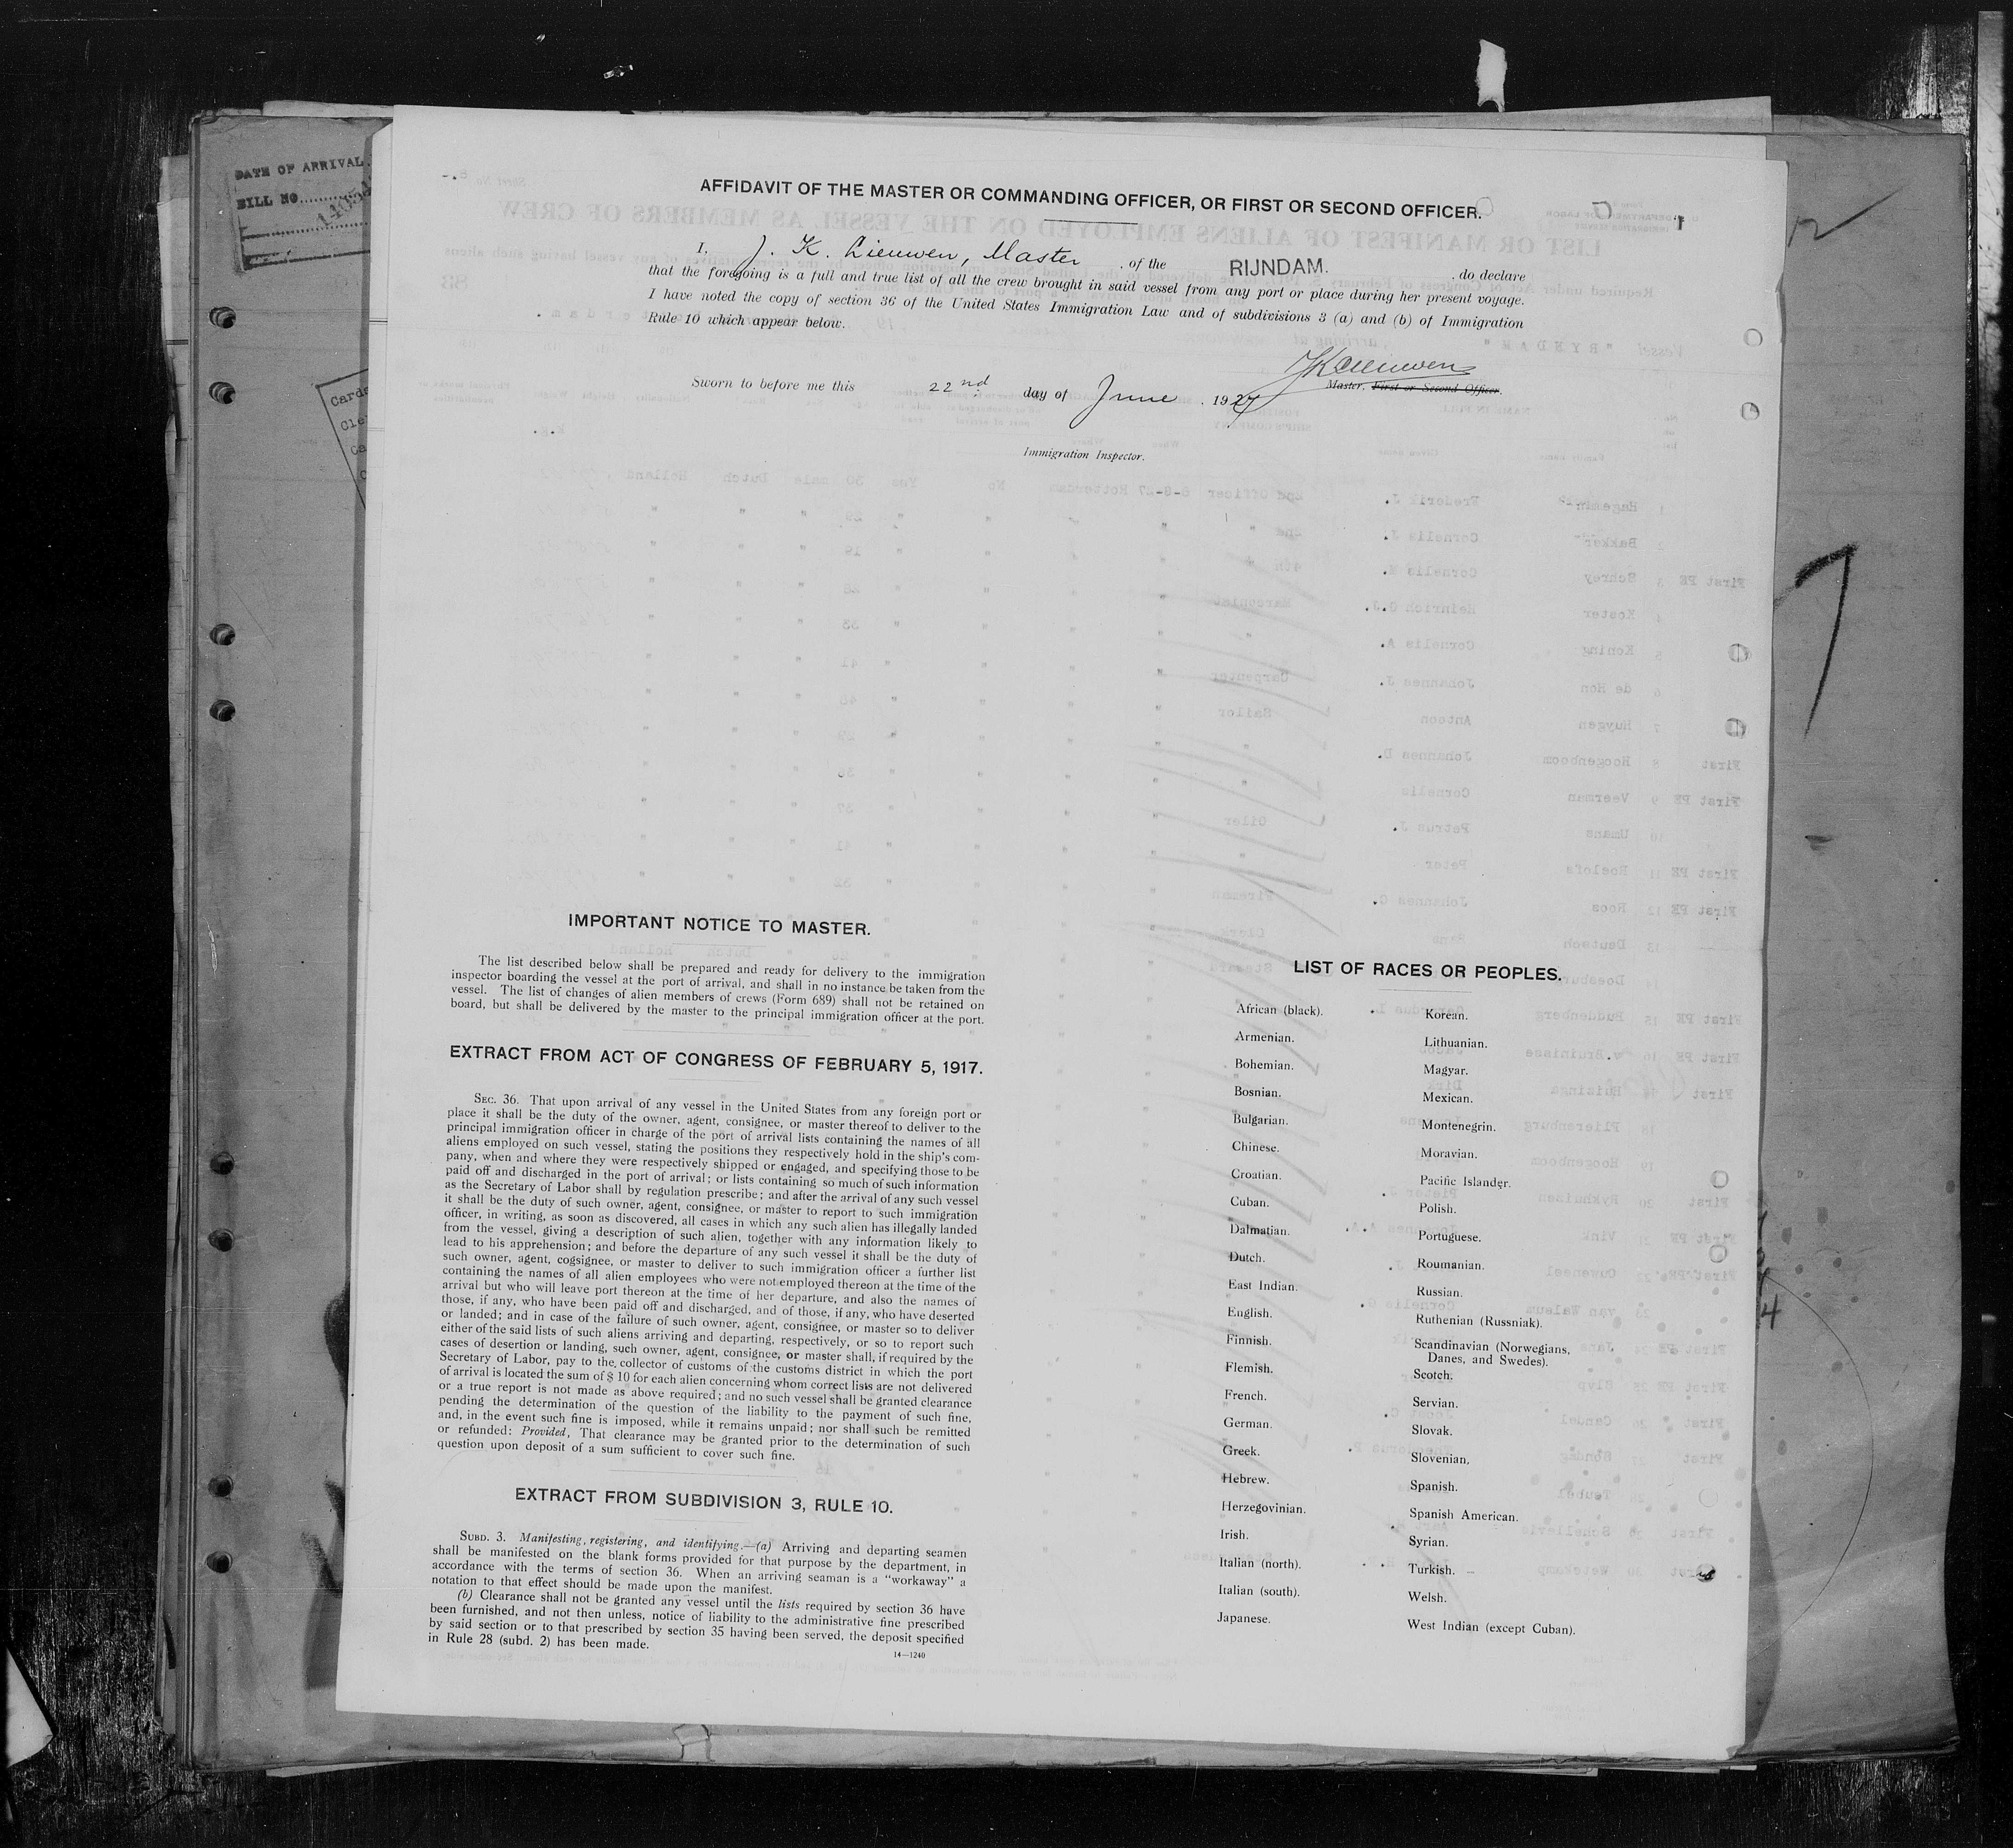 DATE OF ARRIVAL
BILL NO.
AFFIDAVIT OF THE MASTER OR COMMANDING OFFICER, OR FIRST OR SECOND OFFICER.
I, J. K. Lieuwen, Master , of the RIJNDAM. , do declare
that the foregoing is a full and true list of all the crew brought in said vessel from any port or place during her present voyage.
I have noted the copy of section 36 of the United States Immigration Law and of subdivisions 3 (a) and (b) of Immigration
Rule 10 which appear below.
JKLieuwen
Master, First or Second Officer.
Sworn to before me this 22nd day of June , 1927
Immigration Inspector.
IMPORTANT NOTICE TO MASTER.
The list described below shall be prepared and ready for delivery to the immigration
inspector boarding the vessel at the port of arrival, and shall in no instance be taken from the
vessel. The list of changes of alien members of crews (Form 689) shall not be retained on
board, but shall be delivered by the master to the principal immigration officer at the port.
EXTRACT FROM ACT OF CONGRESS OF FEBRUARY 5, 1917.
SEC. 36. That upon arrival of any vessel in the United States from any foreign port or
place it shall be the duty of the owner, agent, consignee, or master thereof to deliver to the
principal immigration officer in charge of the port of arrival lists containing the names of all
aliens employed on such vessel, stating the positions they respectively hold in the ship's com-
pany, when and where they were respectively shipped or engaged, and specifying those to be
paid off and discharged in the port of arrival; or lists containing so much of such information
as the Secretary of Labor shall by regulation prescribe; and after the arrival of any such vessel
it shall be the duty of such owner, agent, consignee, or master to report to such immigration
officer, in writing, as soon as discovered, all cases in which any such alien has illegally landed
from the vessel, giving a description of such alien, together with any information likely to
lead to his apprehension; and before the departure of any such vessel it shall be the duty of
such owner, agent, cogsignee, or master to deliver to such immigration officer a further list
containing the names of all alien employees who were not employed thereon at the time of the
arrival but who will leave port thereon at the time of her departure, and also the names of
those, if any, who have been paid off and discharged, and of those, if any, who have deserted
or landed; and in case of the failure of such owner, agent, consignee, or master so to deliver
either of the said lists of such aliens arriving and departing, respectively, or so to report such
cases of desertion or landing, such owner, agent, consignee, or master shall, if required by the
Secretary of Labor, pay to the collector of customs of the customs district in which the port
of arrival is located the sum of $ 10 for each alien concerning whom correct lists are not delivered
or a true report is not made as above required; and no such vessel shall be granted clearance
pending the determination of the question of the liability to the payment of such fine,
and, in the event such fine is imposed, while it remains unpaid; nor shall such be remitted
or refunded: Provided, That clearance may be granted prior to the determination of such
question upon deposit of a sum sufficient to cover such fine.
EXTRACT FROM SUBDIVISION 3, RULE 10.
SUBD. 3. Manifesting, registering, and identifying.—(a) Arriving and departing seamen
shall be manifested on the blank forms provided for that purpose by the department, in
accordance with the terms of section 36. When an arriving seaman is a "workaway" a
notation to that effect should be made upon the manifest.
(b) Clearance shall not be granted any vessel until the lists required by section 36 have
been furnished, and not then unless, notice of liability to the administrative fine prescribed
by said section or to that prescribed by section 35 having been served, the deposit specified
in Rule 28 (subd. 2) has been made.
14—1240
LIST OF RACES OR PEOPLES.
African (black).
Armenian.
Bohemian.
Bosnian.
Bulgarian.
Chinese.
Croatian.
Cuban.
Dalmatian.
Dutch.
East Indian.
English.
Finnish.
Flemish.
French.
German.
Greek.
Hebrew.
Herzegovinian.
Irish.
Italian (north).
Italian (south).
Japanese.
Korean.
Lithuanian.
Magyar.
Mexican.
Montenegrin.
Moravian.
Pacific Islander.
Polish.
Portuguese.
Roumanian.
Russian.
Ruthenian (Russniak).
Scandinavian (Norwegians,
Danes, and Swedes).
Scotch.
Servian.
Slovak.
Slovenian.
Spanish.
Spanish American.
Syrian.
Turkish.
Welsh.
West Indian (except Cuban).